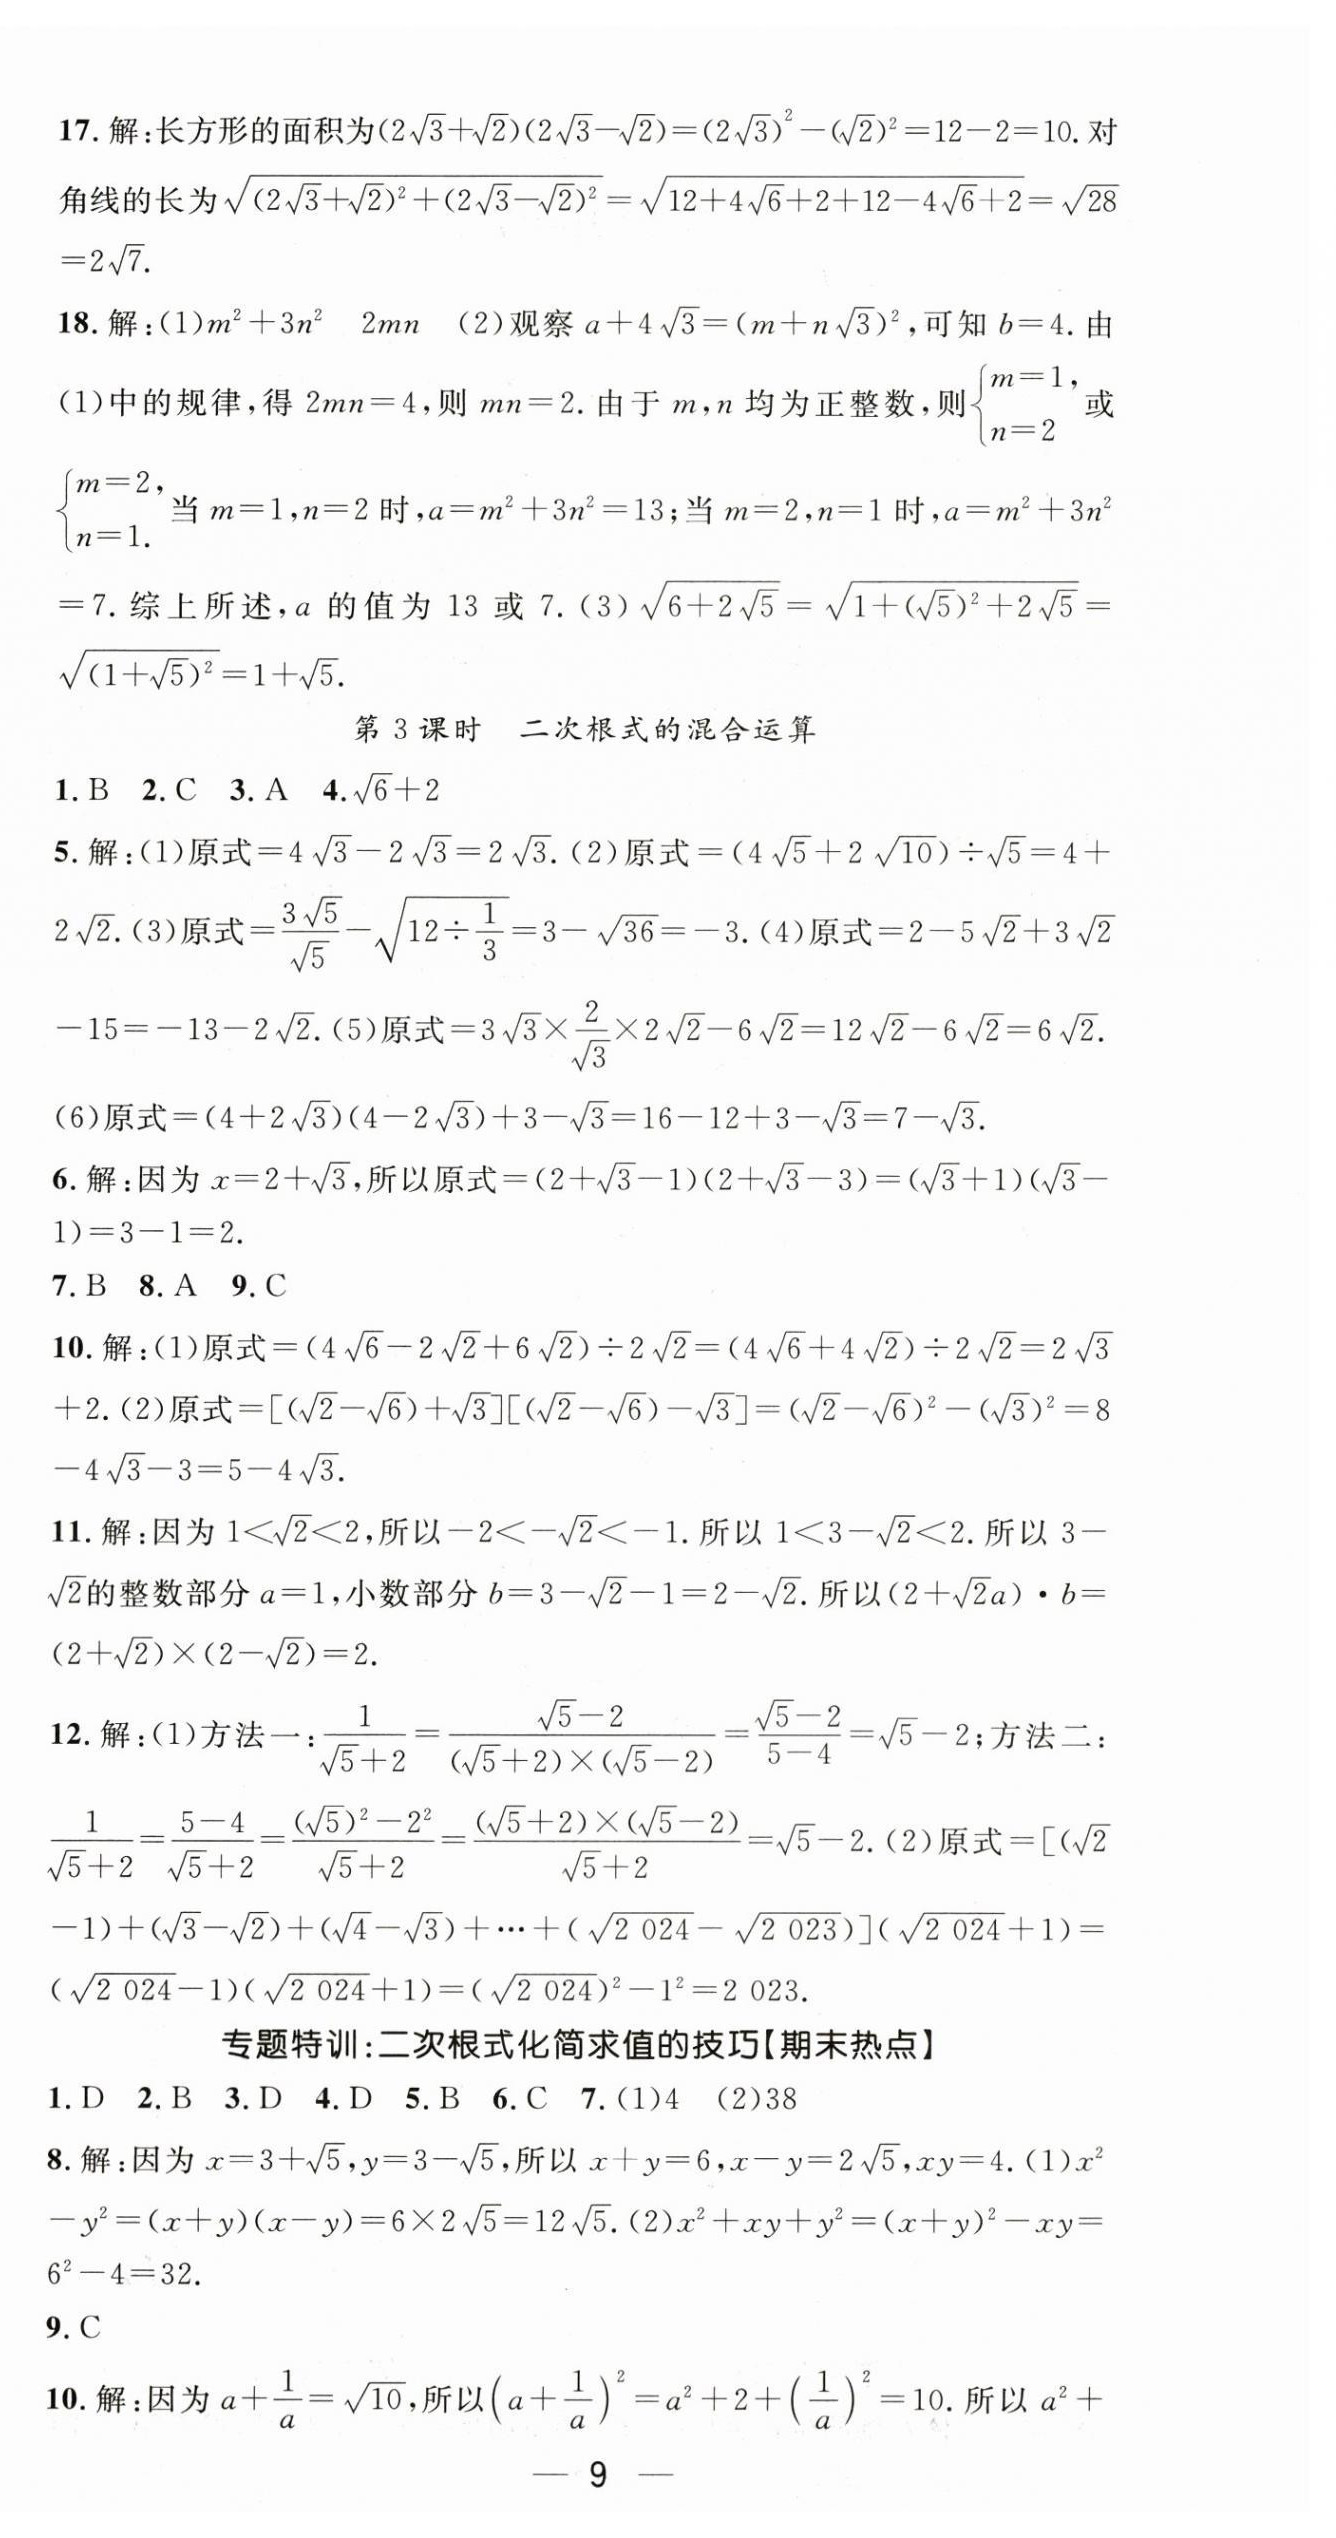 17. 解:长方形的面积为(2√3+√2)(2√3−√2)=(2√3)²−(√2)²=12−2=10. 对
角线的长为√((2√3+√2)²+(2√3−√2)²)=√(12+4√6+2+12−4√6+2)=√28
=2√7.
18. 解:(1)m²+3n² 2mn (2)观察 a+4√3=(m+n√3)²,可知 b=4. 由
(1)中的规律,得 2mn=4,则 mn=2. 由于 m,n 均为正整数,则{m=1, n=2 或
{m=2, n=1. 当 m=1,n=2 时,a=m²+3n²=13;当 m=2,n=1 时,a=m²+3n²
=7. 综上所述,a 的值为 13 或 7. (3)√(6+2√5)=√(1+(√5)²+2√5)=
√((1+√5)²)=1+√5.
第 3 课时 二次根式的混合运算
1. B 2. C 3. A 4. √6+2
5. 解:(1)原式=4√3−2√3=2√3. (2)原式=(4√5+2√10)÷√5=4+
2√2. (3)原式=3√5/√5−√(12÷1/3)=3−√36=−3. (4)原式=2−5√2+3√2
−15=−13−2√2. (5)原式=3√3×2/√3×2√2−6√2=12√2−6√2=6√2.
(6)原式=(4+2√3)(4−2√3)+3−√3=16−12+3−√3=7−√3.
6. 解:因为 x=2+√3,所以原式=(2+√3−1)(2+√3−3)=(√3+1)(√3−
1)=3−1=2.
7. B 8. A 9. C
10. 解:(1)原式=(4√6−2√2+6√2)÷2√2=(4√6+4√2)÷2√2=2√3
+2. (2)原式=[(√2−√6)+√3][(√2−√6)−√3]=(√2−√6)²−(√3)²=8
−4√3−3=5−4√3.
11. 解:因为 1<√2<2,所以−2<−√2<−1. 所以 1<3−√2<2. 所以 3−
√2的整数部分 a=1,小数部分 b=3−√2−1=2−√2. 所以(2+√2a)·b=
(2+√2)×(2−√2)=2.
12. 解:(1)方法一:1/(√5+2)=(√5−2)/((√5+2)×(√5−2))=(√5−2)/(5−4)=√5−2;方法二:
1/(√5+2)=(5−4)/(√5+2)=((√5)²−2²)/(√5+2)=((√5+2)×(√5−2))/(√5+2)=√5−2. (2)原式=[(√2
−1)+(√3−√2)+(√4−√3)+⋯+(√2 024−√2 023)](√2 024+1)=
(√2 024−1)(√2 024+1)=(√2 024)²−1²=2 023.
专题特训:二次根式化简求值的技巧【期末热点】
1. D 2. B 3. D 4. D 5. B 6. C 7. (1)4 (2)38
8. 解:因为 x=3+√5,y=3−√5,所以 x+y=6,x−y=2√5,xy=4. (1)x²
−y²=(x+y)(x−y)=6×2√5=12√5. (2)x²+xy+y²=(x+y)²−xy=
6²−4=32.
9. C
10. 解:因为 a+1/a=√10,所以(a+1/a)²=a²+2+(1/a)²=10. 所以 a²+
— 9 —